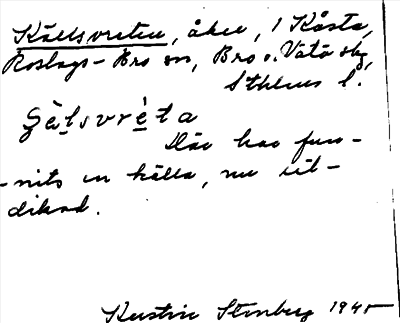 Källsvreten, åker, i Kåsta,
Roslags-Bro sn, Bro o. Vätö skg,
Sthlms l.
Şὲḷsvrὲ̣ta
Där har fun-
-nits en källa, nu ut-
dikad.
Kerstin Stenberg 1945